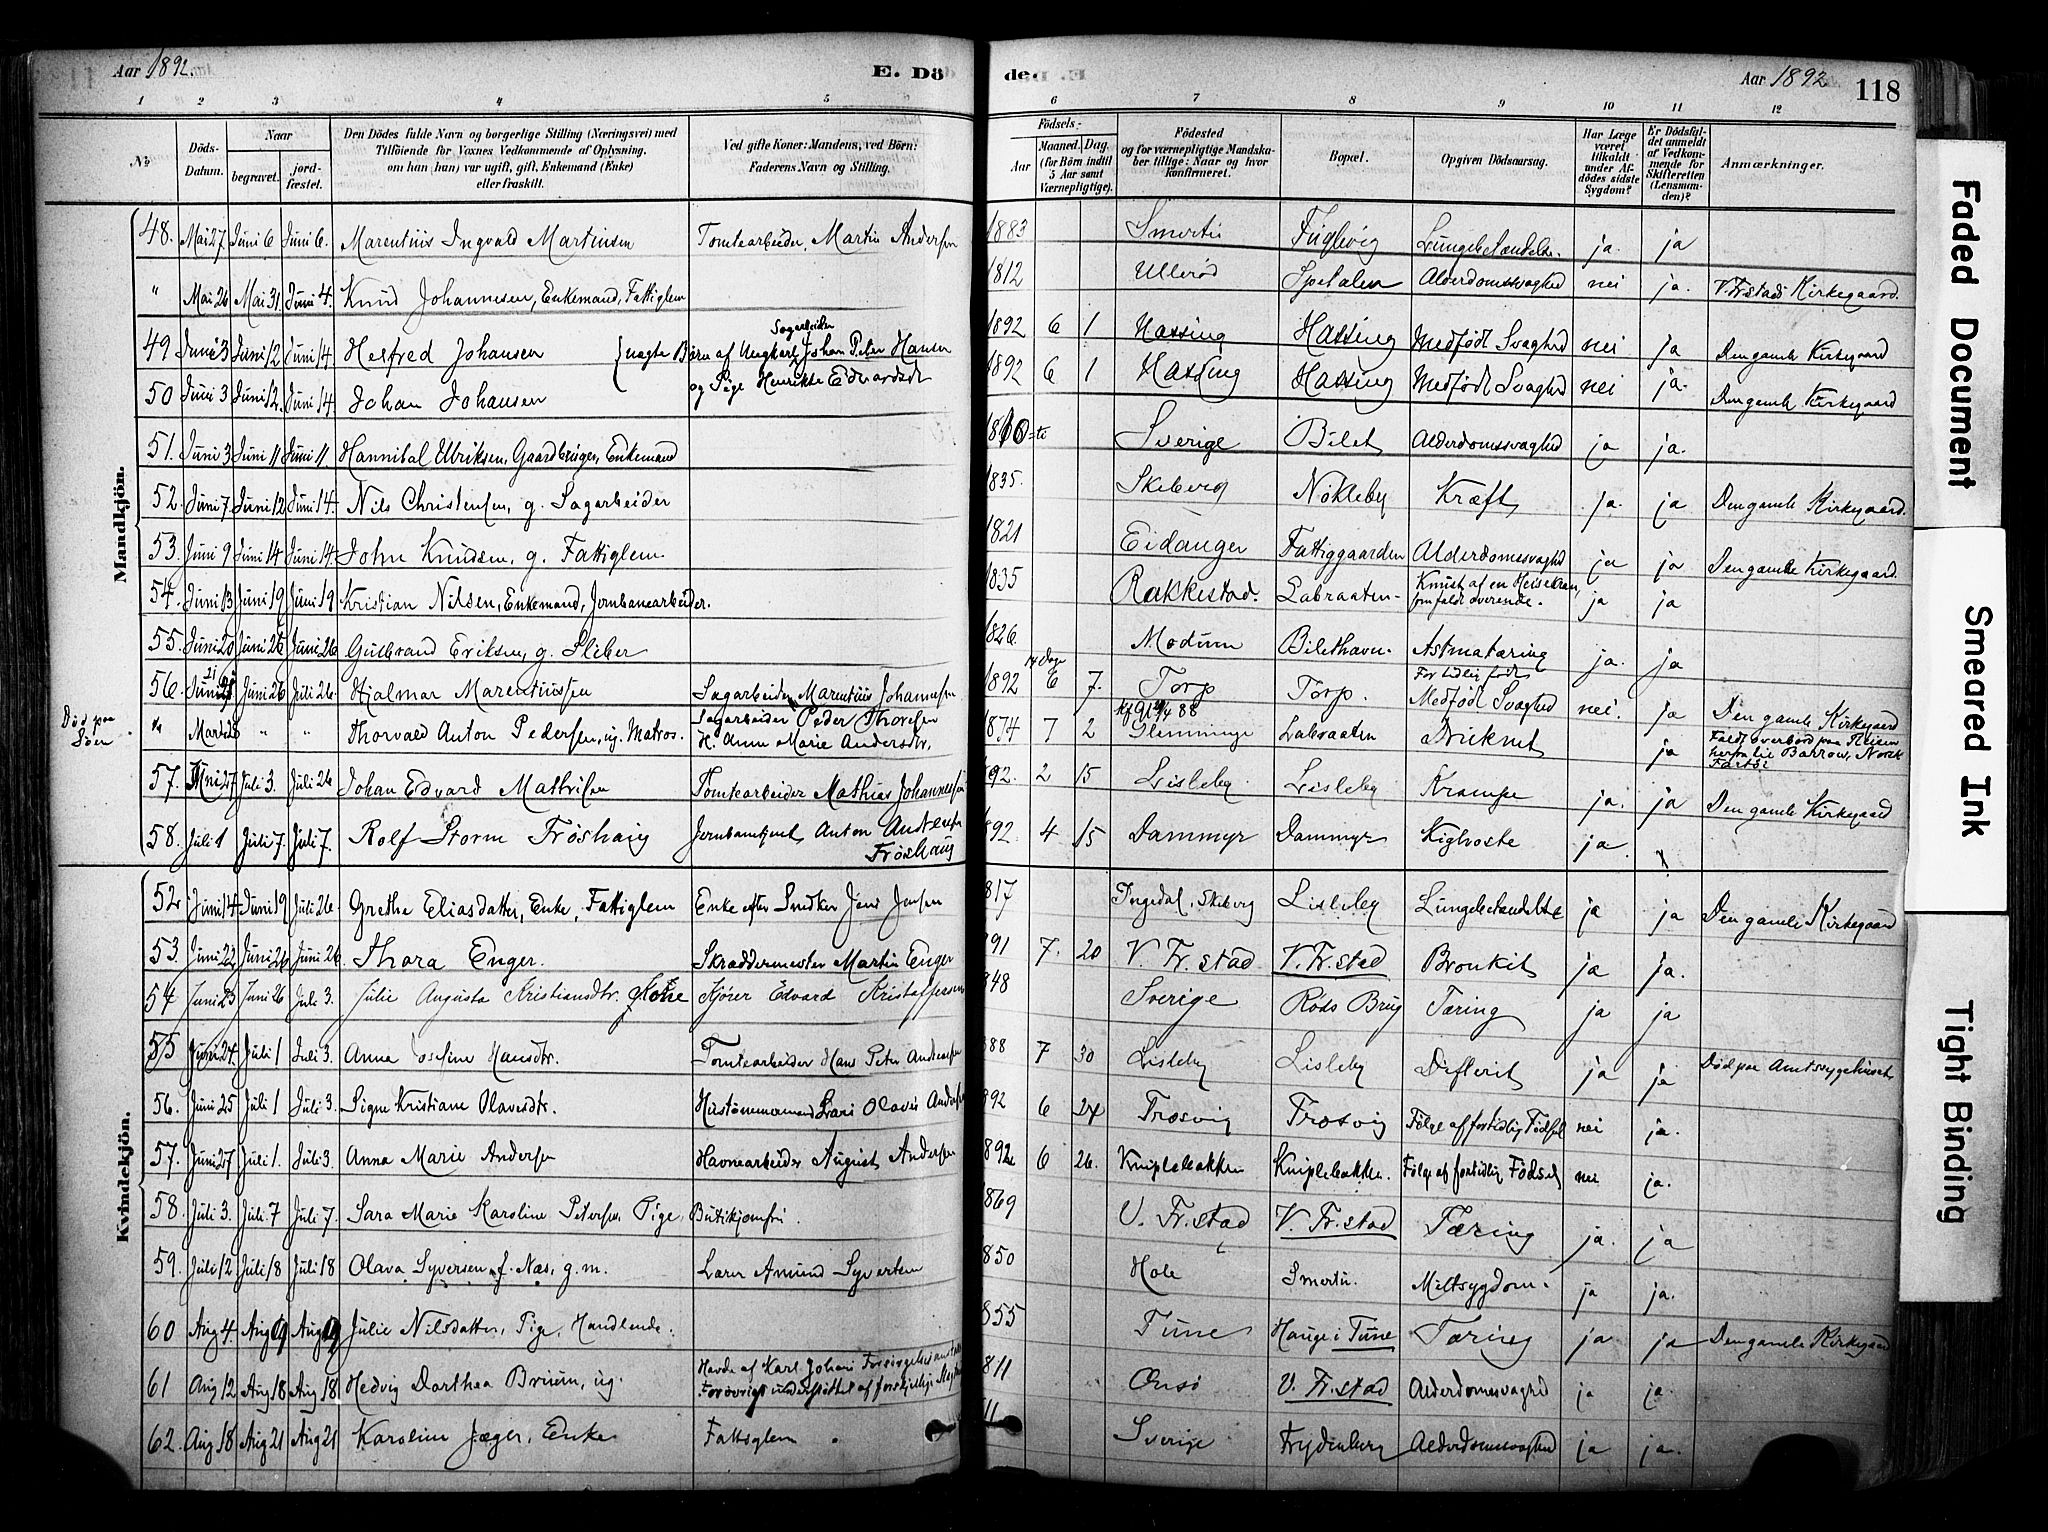 Aar 1892. E. Dö de. Aar 1892 118
1 2 3 4 5 6 7 8 9 10 11 12
No Döds-Datum. Naar begravet. jordfæstet. Den Dödes fulde Navn og borgerlige Stilling (Næringsvei) med Tilföiende for Voxnes Vedkommende af Oplysning, om han (hun) var ugift, gift, Enkemand (Enke) eller fraskilt. Ved gifte Koner: Mandens, ved Börn: Faderens Navn og Stilling. Födsels- Aar Maaned. Dag. (for Börn indtil 5 Aar samt Værnepligtige). Födested og for værnepligtige Mandskaber tillige: Naar og hvor Konfirmeret. Bopæl. Opgiven Dödsaarsag. Har Læge været tilkaldt under Afdödes sidste Sygdom? Er Dödsfaldet anmeldt af Vedkommende for Skifteretten (Lensmanden)? Anmærkninger.
Mandkjön.
48. Mai 27 Juni 6 Juni 6. Marentius Ingvald Martinsen Tomtearbeider, Martin Andersen 1883 Smertu Fuglevig ja. ja
" Mai 26 Mai 31 Juni 4. Knud Johannesen, Enkemand, Fattiglem 1812 Ullerød Spetalen Alderdomssvaghed nei ja. V. Fr.stads Kirkegaard.
49 Juni 3 Juni 12 Juni 14 Helfred Johansen { uægte Børn af Ungkarl Sagarbeider Johan Peter Hansen 1892 6 1 Hassing Hassing Medfødt Svaghed nei ja Den gamle Kirkegaard
50 Juni 3 Juni 12. Juni 14 Johan Johansen og Pige Henrikke Edvardsdt 1892 6 1 Hassing Hassing Medfødt Svaghed nei ja. Den gamle Kirkegaard
51. Juni 3 Juni 11 Juni 11. Hannibal Ulriksen, Gaardbruger, Enkemand 1810 Sverige Bilet Alderdomssvaghed ja ja.
52. Juni 7 Juni 12 Juni 14. Nils Christensen, g. Sagarbeider 1835. Skeberg Nøkleby Kræft ja. ja Den gamle Kirkegaard.
53. Juni 9 Juni 14 Juni 14. John Knudsen, g. Fattiglem 1821 Eidanger Fattiggaarden Alderdomssvaghed ja ja Den gamle Kirkegaard.
54. Juni 13 Juni 19 Juni 19 Kristian Nilsen, Enkemand, Jernbanearbeider. 1835 Rakkestad. Labraaten Knust af en Heisekran, som faldt overende. ja ja
55. Juni 20 Juni 26 Juni 26 Gulbrand Eriksen, g. Sliber 1826. Modum Bilethavn. Astmatæring ja. ja
56. Juni 21 Juni 26 Juli 26. Hjalmar Marentiussen Sagarbeider Marentius Johannesen 1892 14 Dage 6 7. Torp Torp. For tidlig født Medfødt Svaghed nei. ja Den gamle Kirkegaard
Død paa Søen " Marts 28 " " Thorvald Anton Pedersen, ug. Matros. Sagarbeider Peder Thoresen H. Anne Marie Andersdtr. 1874 7 2 Glemminge Labraaten Druknet ja Faldt overbord paa Reisen
57. Juni 27 Juli 3. Juli 26 Johan Edvard Mathisen Tomtearbeider Mathias Johannesen 892. 2 15 Lisleby Lisleby Krampe ja. ja Den gamle Kirkegaard
58. Juli 1 Juli 7. Juli 7. Rolf Storm Frøshaug Jernbanebetjent Anton Andersen Frøshaug 892. 4 15 Dammyr Dammyr Kighoste ja.
Kvindekjön.
52. Juni 14. Juni 19 Juli 26. Grethe Eliasdatter, Enke, Fattiglem Enke efter Snedker Jens Jensen 817 Ingedal, Skeberg Lisleby Lungebetændelse ja ja Den gamle Kirkegaard
53. Juni 22 Juni 26 Juni 26. Thora Enger. Skræddermester Martin Enger 91 7. 20 V. Fr.stad V. Fr.stad Bronkit ja ja.
54 Juni 23 Juni 26 Juli 3. Julie Augusta Kristiansdtr. Kone Kjører Edvard Kristoffersen 848 Sverige Røds Brug Tæring ja ja
55 Juni 24. Juli 1 Juli 3. Anna Josefine Hansdtr. Tomtearbeider Hans Peter Andreasen 888 7 30 Lisleby Lisleby Difterit ja ja Død paa Amtssygehuset
56. Juni 25 Juli 1 Juli 3. Signe Kristiane Olavesdtr. Lars Olavus Andersen 892 6 24 Trosvig Trosvig Følge af fortidlig Fødsel nei ja.
57. Juni 27 Juli 1. Juli 3. Anna Marie Andersen Havnearbeider August Andersen 892 6 26. Kniplebakken Kniplebakken. Følge af fortidlig Fødsel nei ja.
58. Juli 3. Juli 7 Juli 7. Sara Marie Karoline Petersen, Pige, Butikjomfru. 869 V. Fr.stad V. Fr.stad Tæring ja. ja
59. Juli 12 Juli 18 Juli 18 Olava Syversen f. Næs, g. m. Lærer Amund Syvertsen 850 Hole Smertu. Miltsygdom. ja ja.
60 Aug 4 Aug 9 Aug 9 Julie Nilsdatter, Pige, Handlende. 855 Tune Hauge i Tune Tæring ja ja Den gamle Kirkegaard
61 Aug 12 Aug 18 Aug 18 Hedvig Dorthea Bruun, ug. Havde af Karl Johans Forsørgelsesanstalt Forøvrigt understøttet af forskjellige 811 Onsø V. Fr.stad Alderdomssvaghed ja ja.
62. Aug 18 Aug 21 Aug 21 Karoline Jæger, Enke Fattiglem 11 Sverige Frydenberg Alderdomssvaghed ja ja.
Faded Document
Smeared Ink
Tight Binding